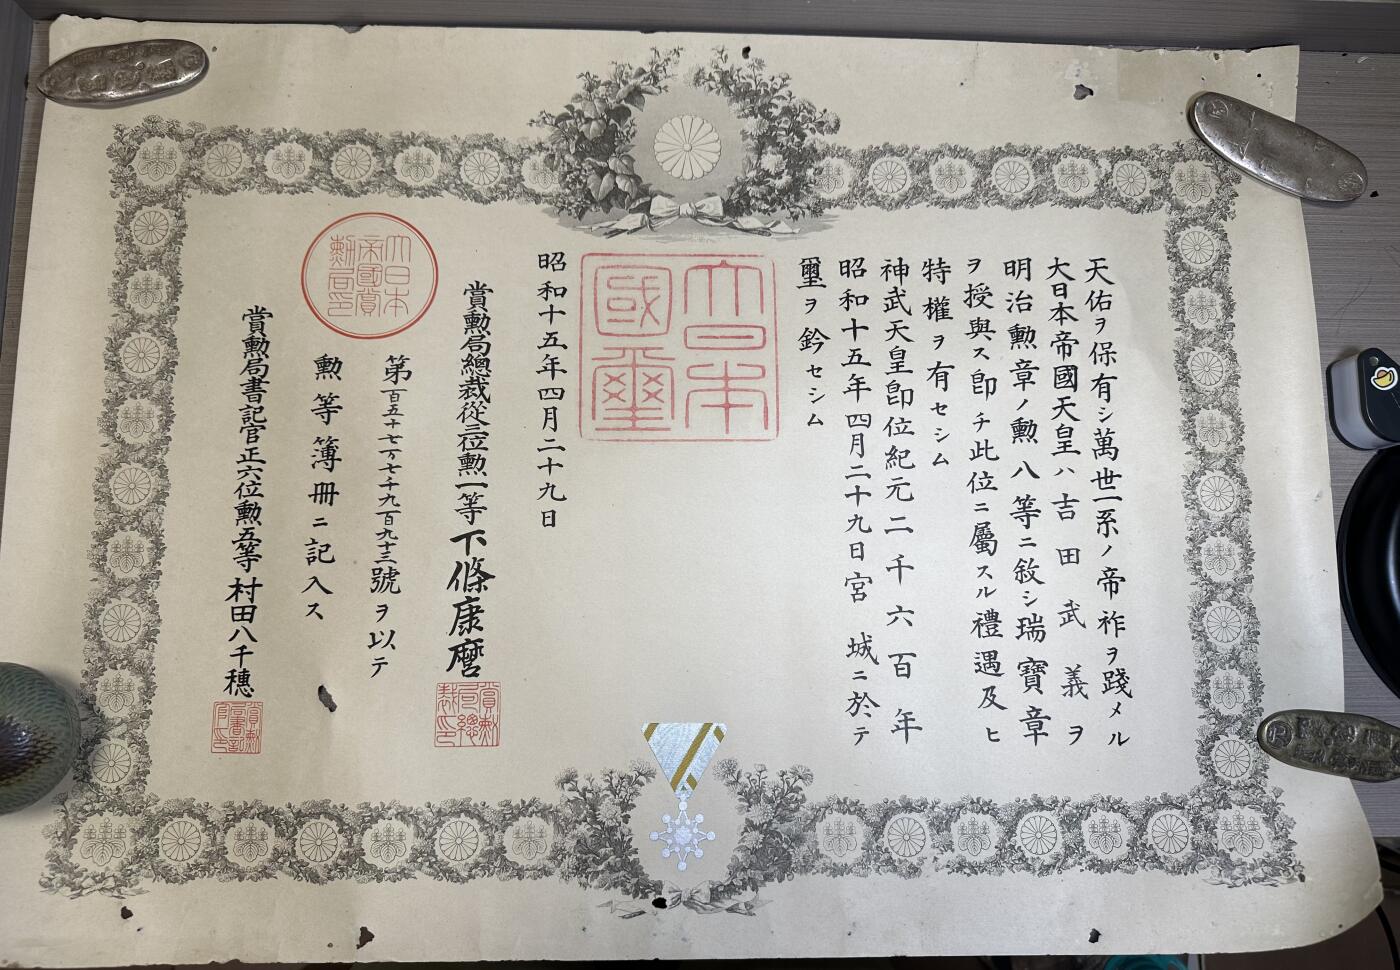 天佑ヲ保有シ萬世一系ノ帝祚ヲ踐メル
大日本帝國天皇ハ吉田武義ヲ
明治勲章ノ勲八等ニ敘シ瑞寶章
ヲ授與ス卽チ此位ニ屬スル禮遇及ヒ
特權ヲ有セシム
神武天皇卽位紀元二千六百年
昭和十五年四月二十九日宮城ニ於テ
璽ヲ鈐セシム
大日本
國璽
昭和十五年四月二十九日
賞勲局總裁從三位勲一等下條康麿
賞勲局總裁印
第百五十七万七千九百九十三號ヲ以テ
勲等簿冊ニ記入ス
大日本帝國賞勲局印
賞勲局書記官正六位勲五等村田八千穗
賞勲局書記官印